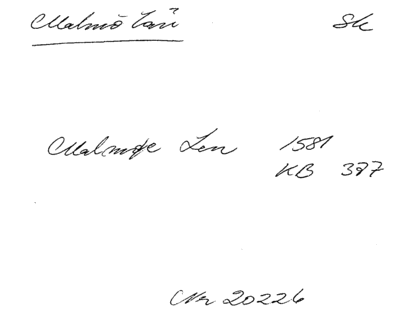 Malmö län Sk
Malmøe Len 1581
KB 387
Nr 20226